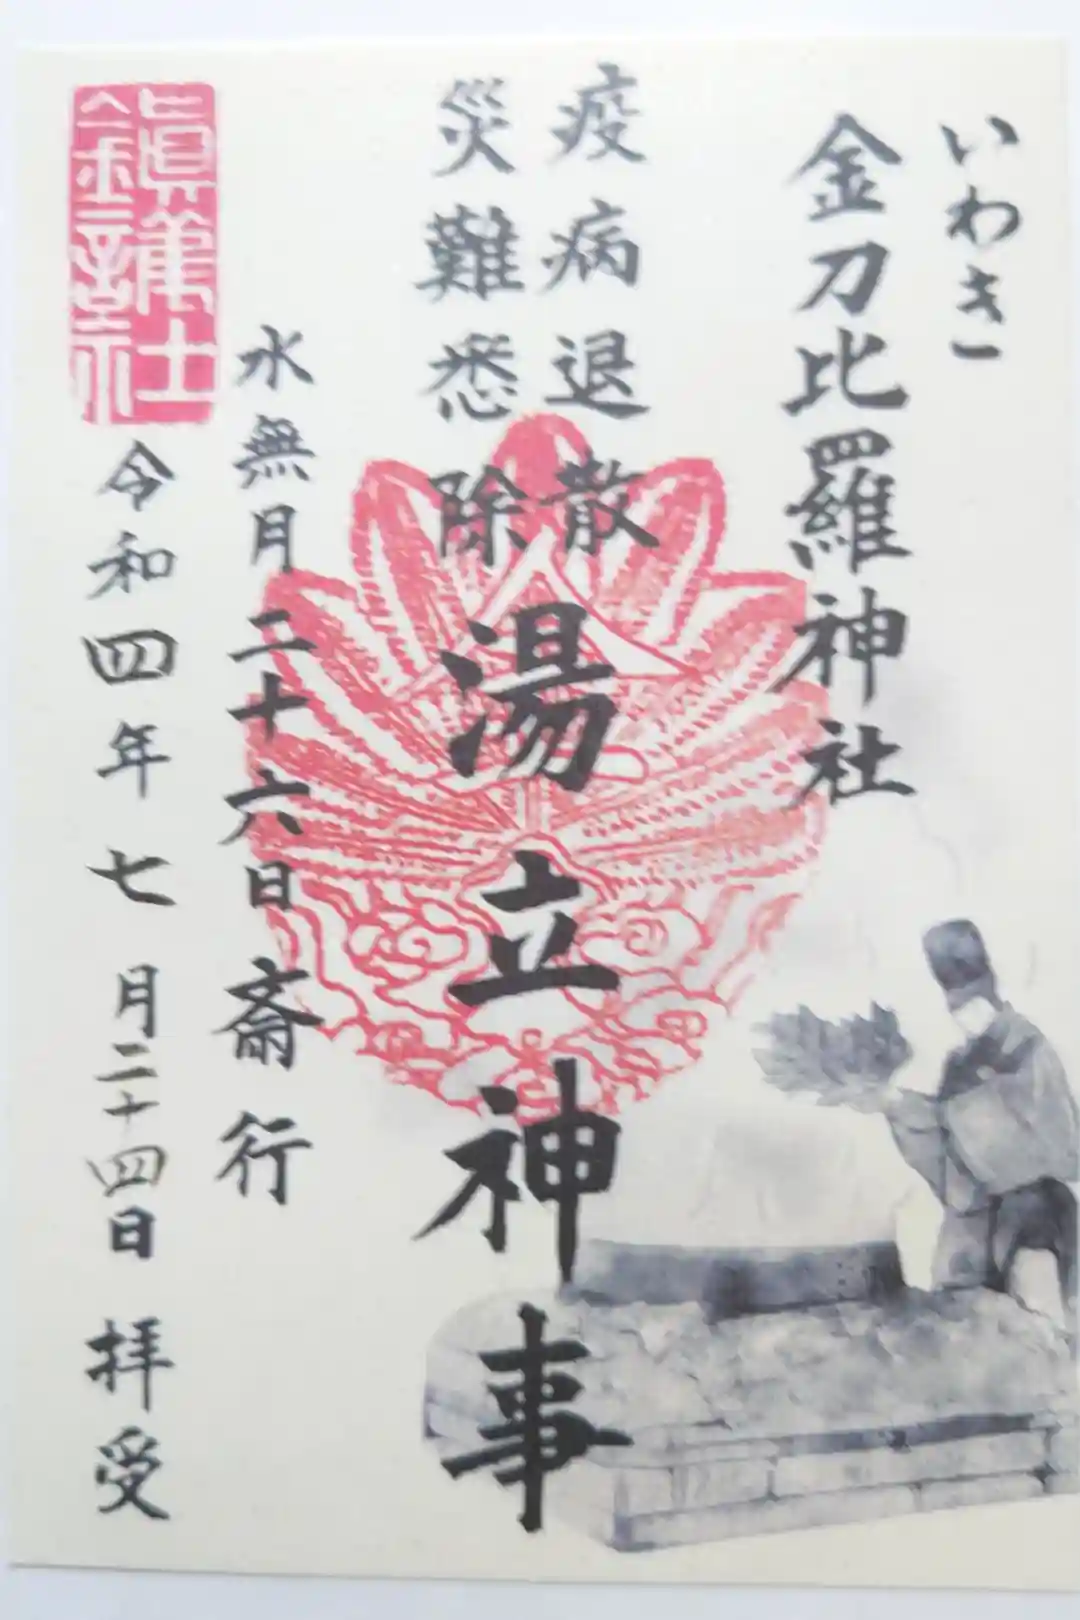 いわき
金刀比羅神社
疫病退散
災難悉除
湯立神事
水無月二十六日斎行
令和四年七月二十四日拝受